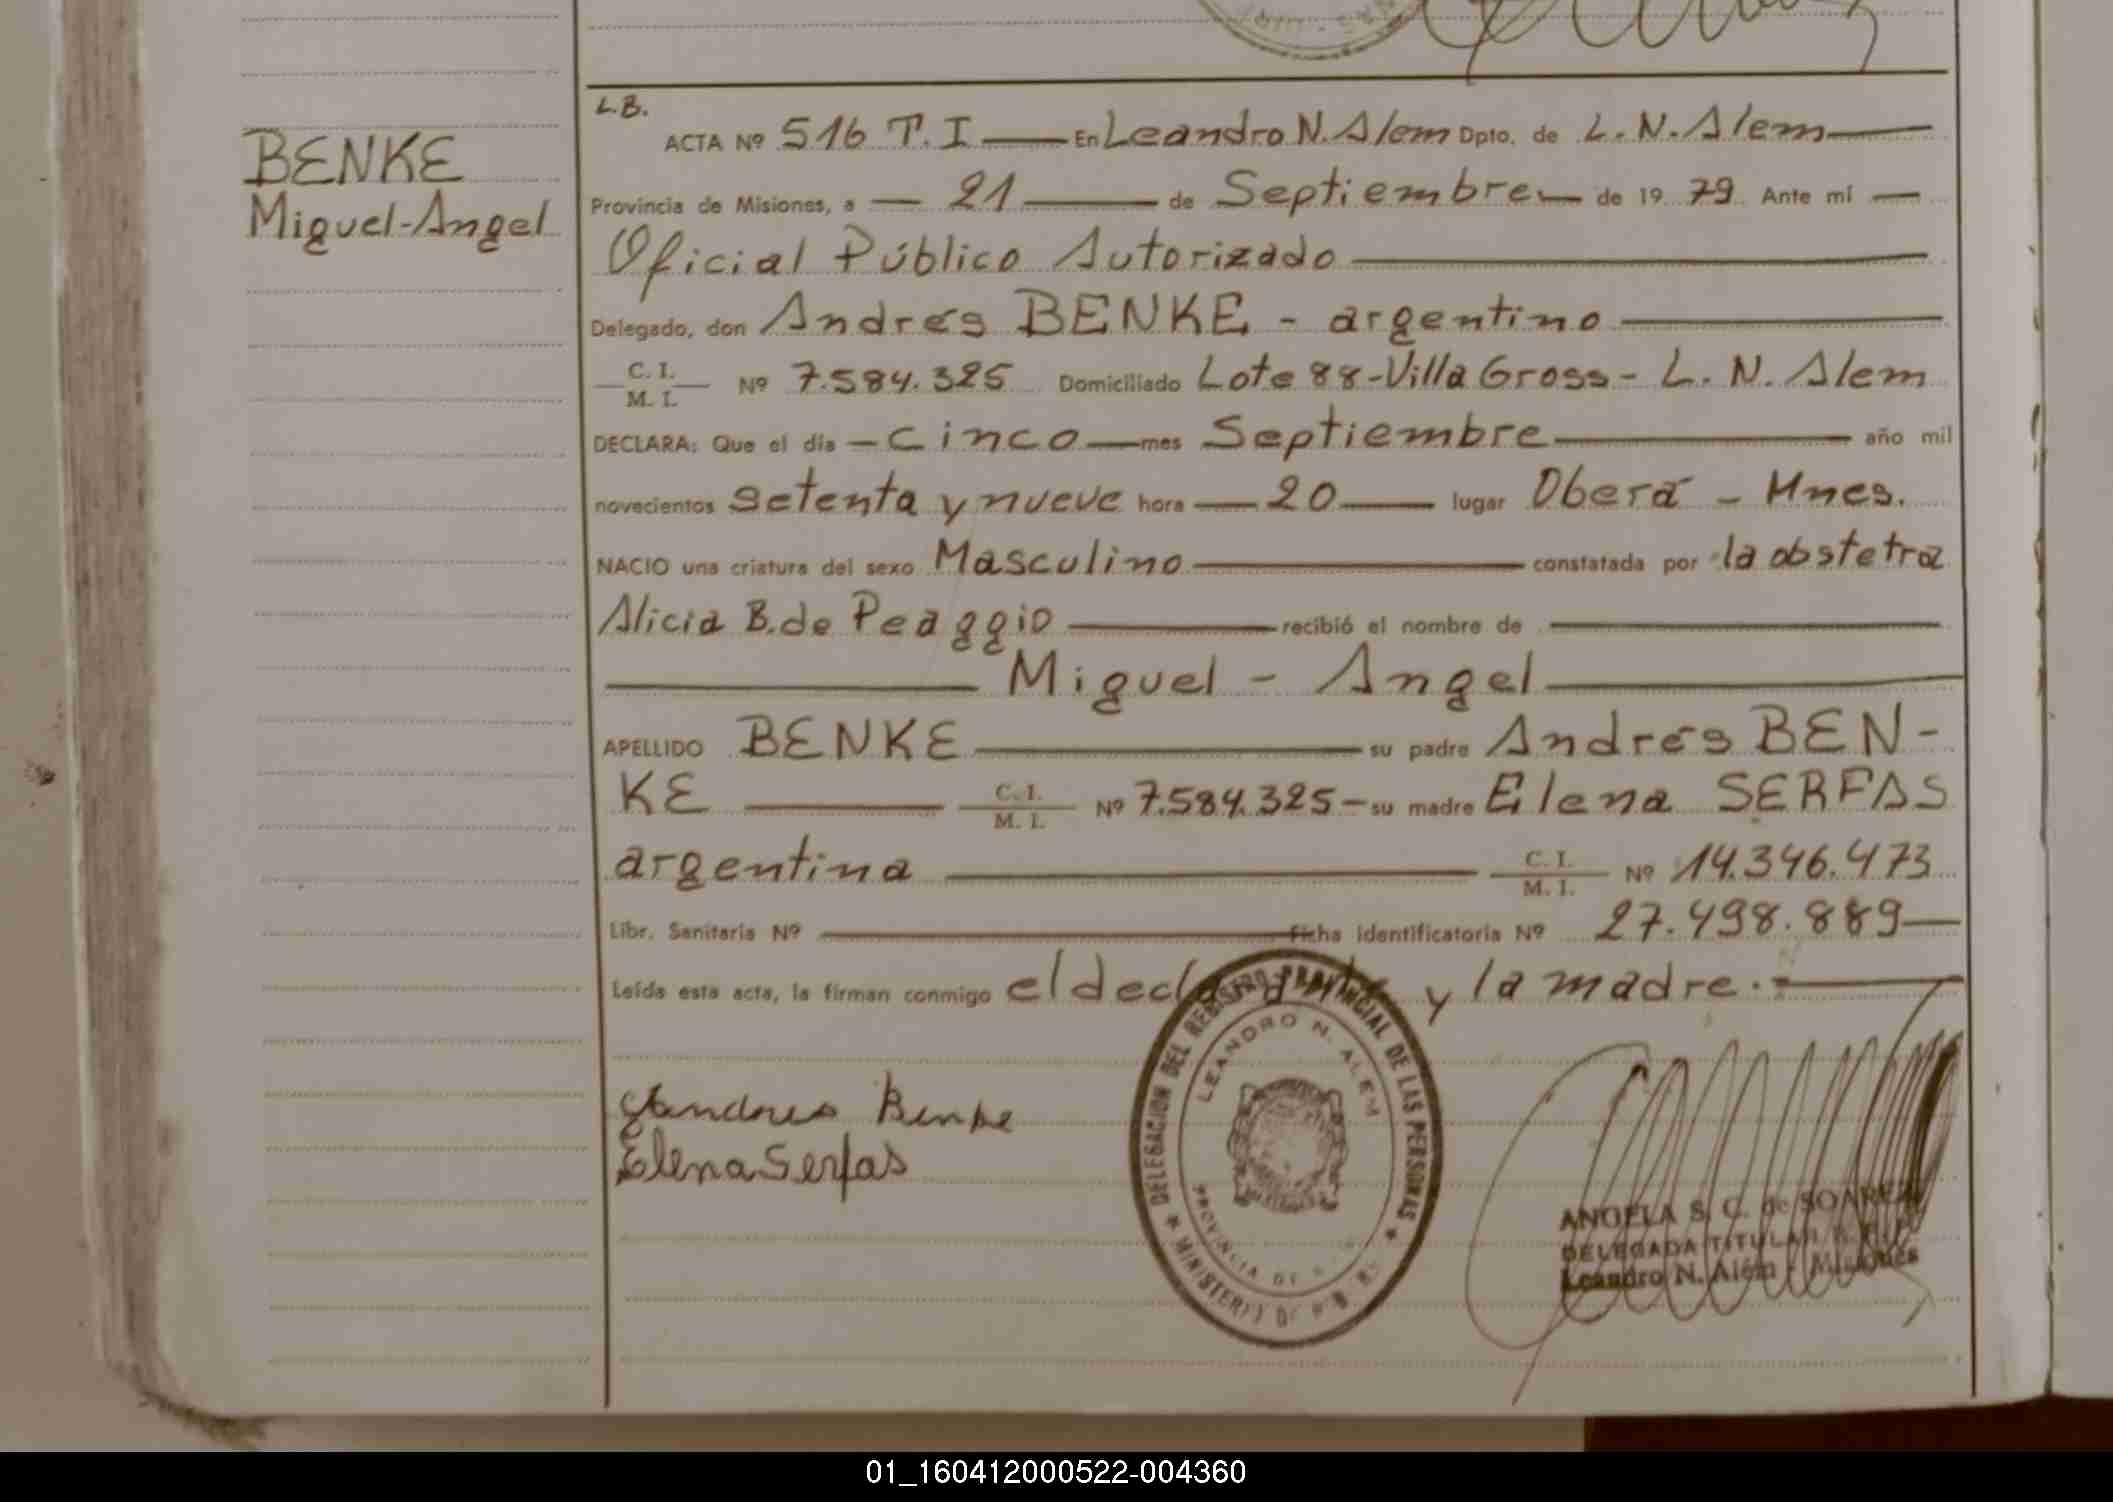 L.B.
BENKE
Miguel-Angel
ACTA Nº 516 T. I — En Leandro N. Alem Dpto. de L. N. Alem —
Provincia de Misiones, a — 21 — de Septiembre — de 19 79 Ante mí —
Oficial Público Autorizado —
Delegado, don Andrés BENKE - argentino —
C. I.
M. I.
Nº 7.584.325 Domiciliado Lote 88-Villa Gross- L. N. Alem
DECLARA: Que el día — cinco — mes Septiembre — año mil
novecientos setenta y nueve hora — 20 — lugar Oberá - Mnes.
NACIO una criatura del sexo Masculino — constatada por la obstetra
Alicia B. de Peaggio — recibió el nombre de —
— Miguel - Angel —
APELLIDO BENKE — su padre Andrés BEN-
KE — C. I. M. I. Nº 7.584.325- su madre Elena SERFAS
argentina — C. I. M. I. Nº 14.346.473
Libr. Sanitaria Nº — Ficha identificatoria Nº 27.498.889 —
Leída esta acta, la firman conmigo el declarante y la madre. -
Andres Benke
Elena Serfas
DELEGACION DEL REGISTRO PROVINCIAL DE LAS PERSONAS
LEANDRO N. ALEM
PROVINCIA DE
MINISTERIO DE
ANGELA S. C. de SOAREZ
DELEGADA TITULAR
Leandro N. Alem - Misiones
01_160412000522-004360